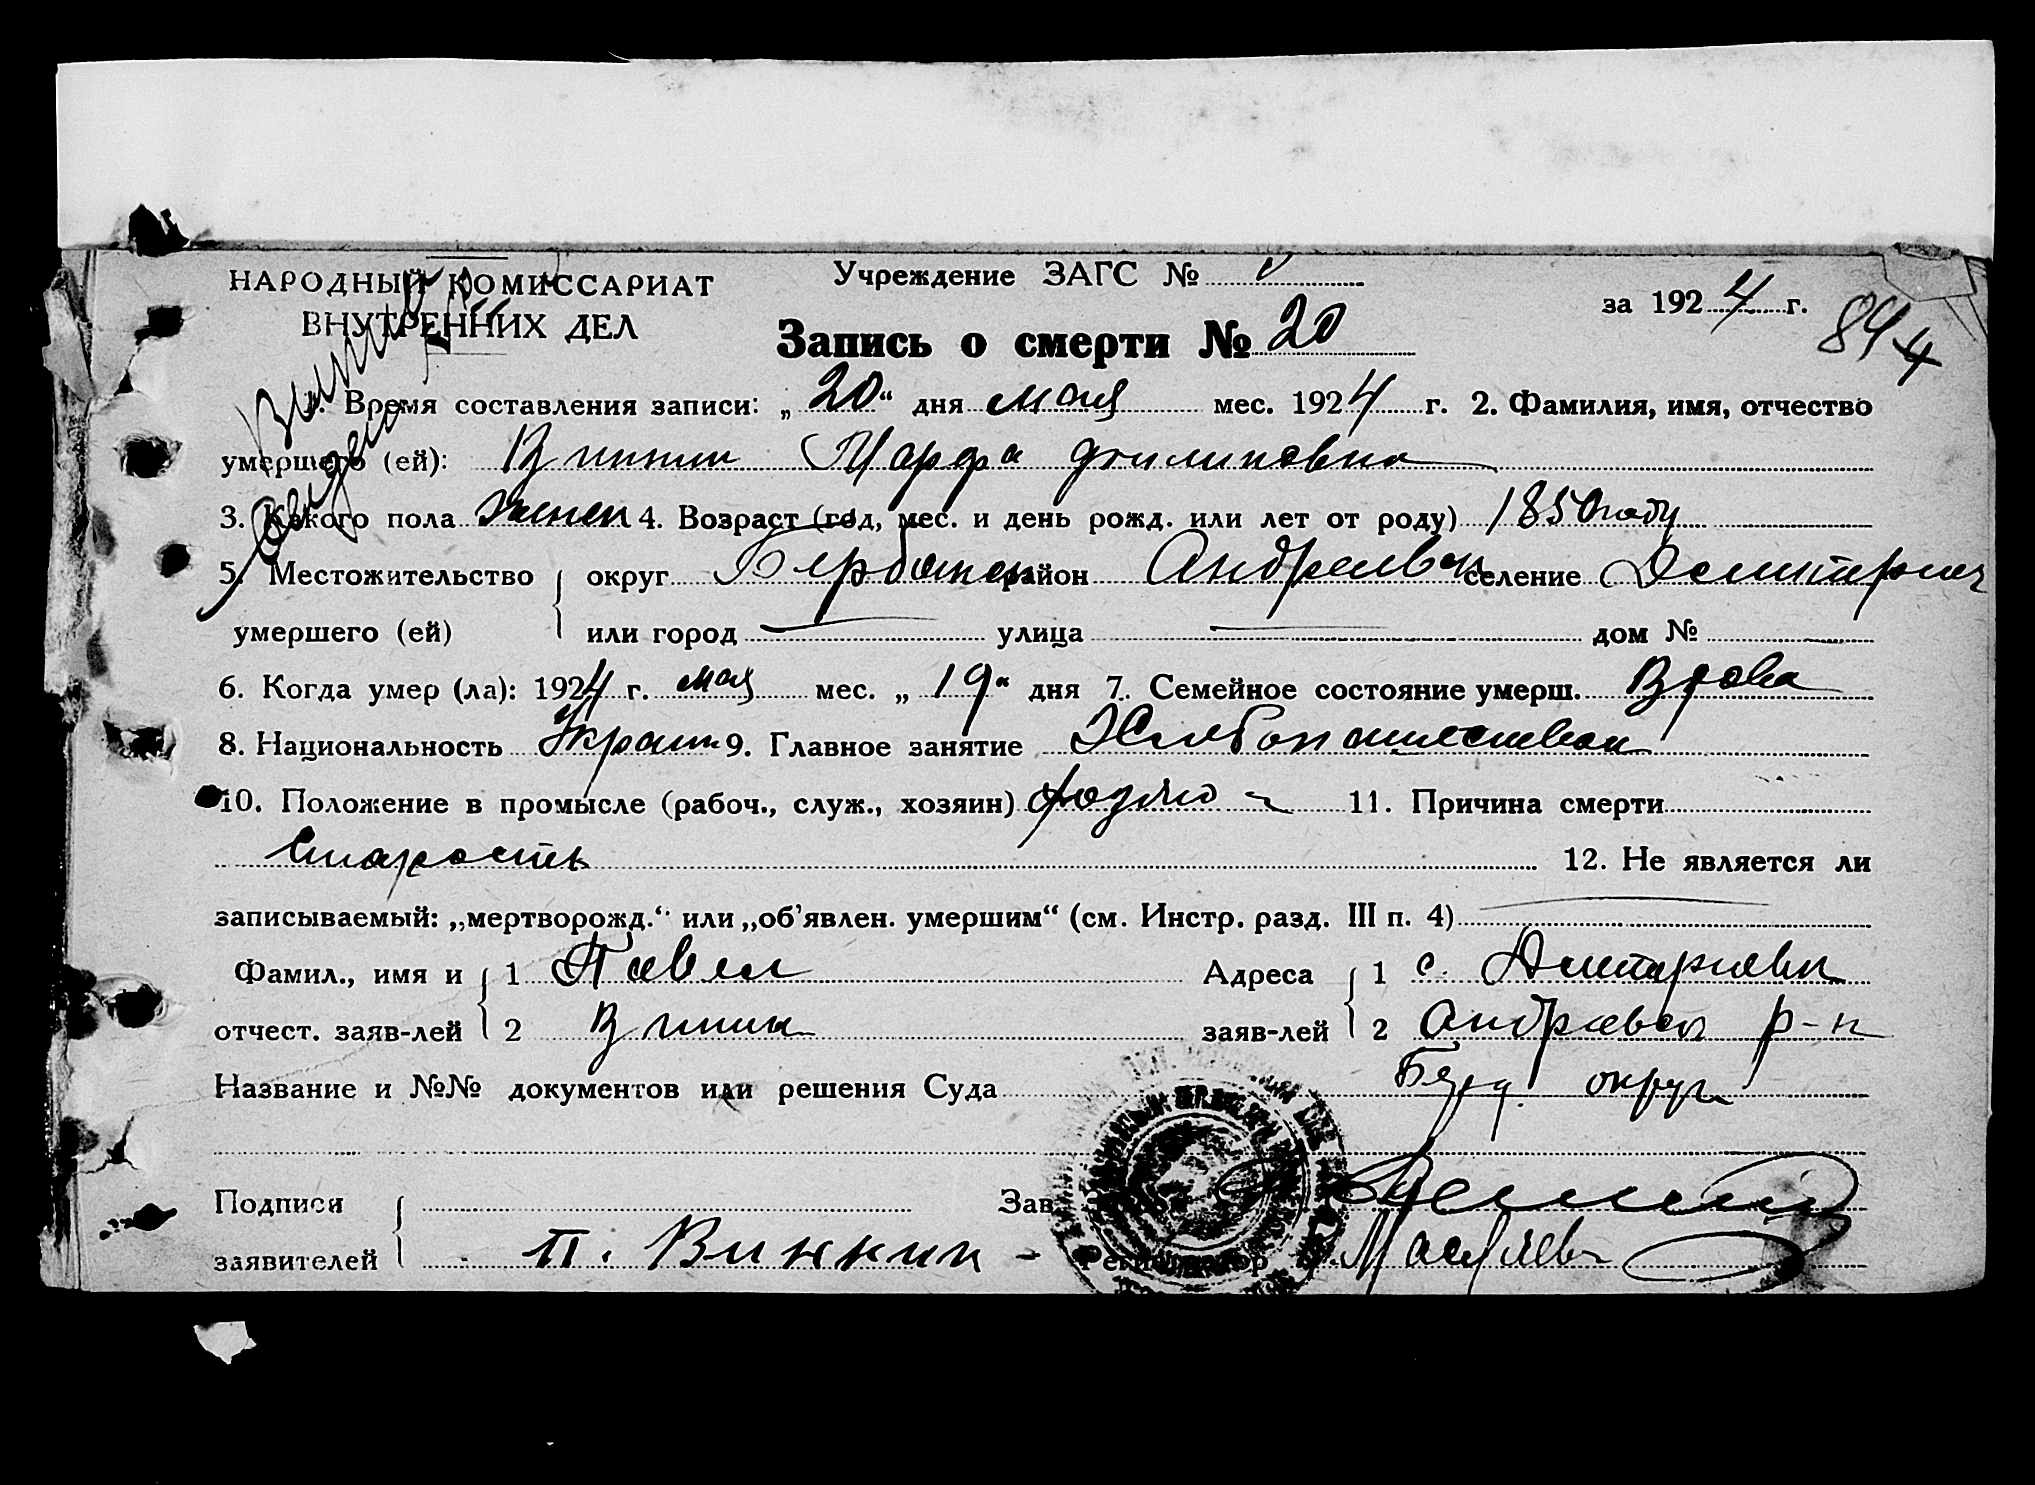 НАРОДНЫЙ КОМИССАРИАТ
ВНУТРЕННИХ ДЕЛ
Учреждение ЗАГС №
за 1924 г.
844
Запись о смерти № 20
1. Время составления записи: „20“ дня мая мес. 1924 г. 2. Фамилия, имя, отчество
умершего (ей): Марфа Филиповна
3. Какого пола женск 4. Возраст (год, мес. и день рожд. или лет от роду) 1850 году
5. Местожительство округ район Андреевск селение
умершего (ей) или город улица дом №
6. Когда умер (ла): 1924 г. мая мес. „19“ дня 7. Семейное состояние умерш. Вдова
8. Национальность Украин 9. Главное занятие
10. Положение в промысле (рабоч., служ., хозяин) 11. Причина смерти
Старость 12. Не является ли
записываемый: „мертворожд.“ или „об'явлен. умершим“ (см. Инстр. разд. III п. 4)
Фамил., имя и 1 Павел Адреса 1 с. Дмитриевки
отчест. заяв-лей 2 заяв-лей 2 Андреевск р-н
Название и №№ документов или решения Суда округа
Подписи Зав.
заявителей П. Винник Регистратор